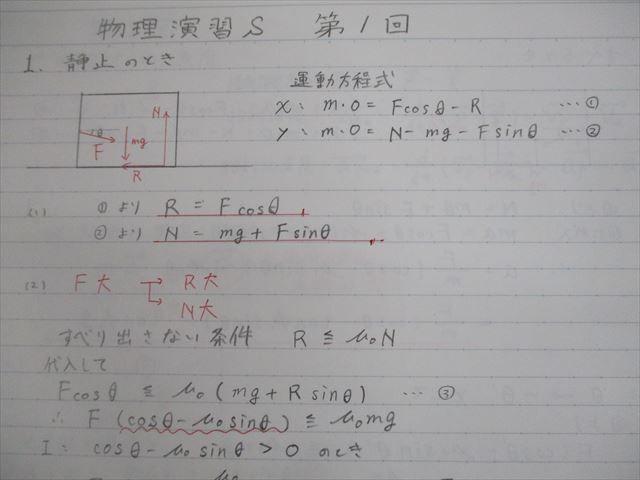 物理演習S 第1回
1. 静止のとき
運動方程式
x: m・0 = Fcosθ - R …①
y: m・0 = N - mg - Fsinθ …②
N
θ
F
mg
R
(1) ①より R = Fcosθ
②より N = mg + Fsinθ
(2) F大 → R大
→ N大
すべり出さない条件 R ≦ μ₀N
代入して
Fcosθ ≦ μ₀(mg + Rsinθ) …③
∴ F(cosθ - μ₀sinθ) ≦ μ₀mg
I: cosθ - μ₀sinθ > 0 のとき